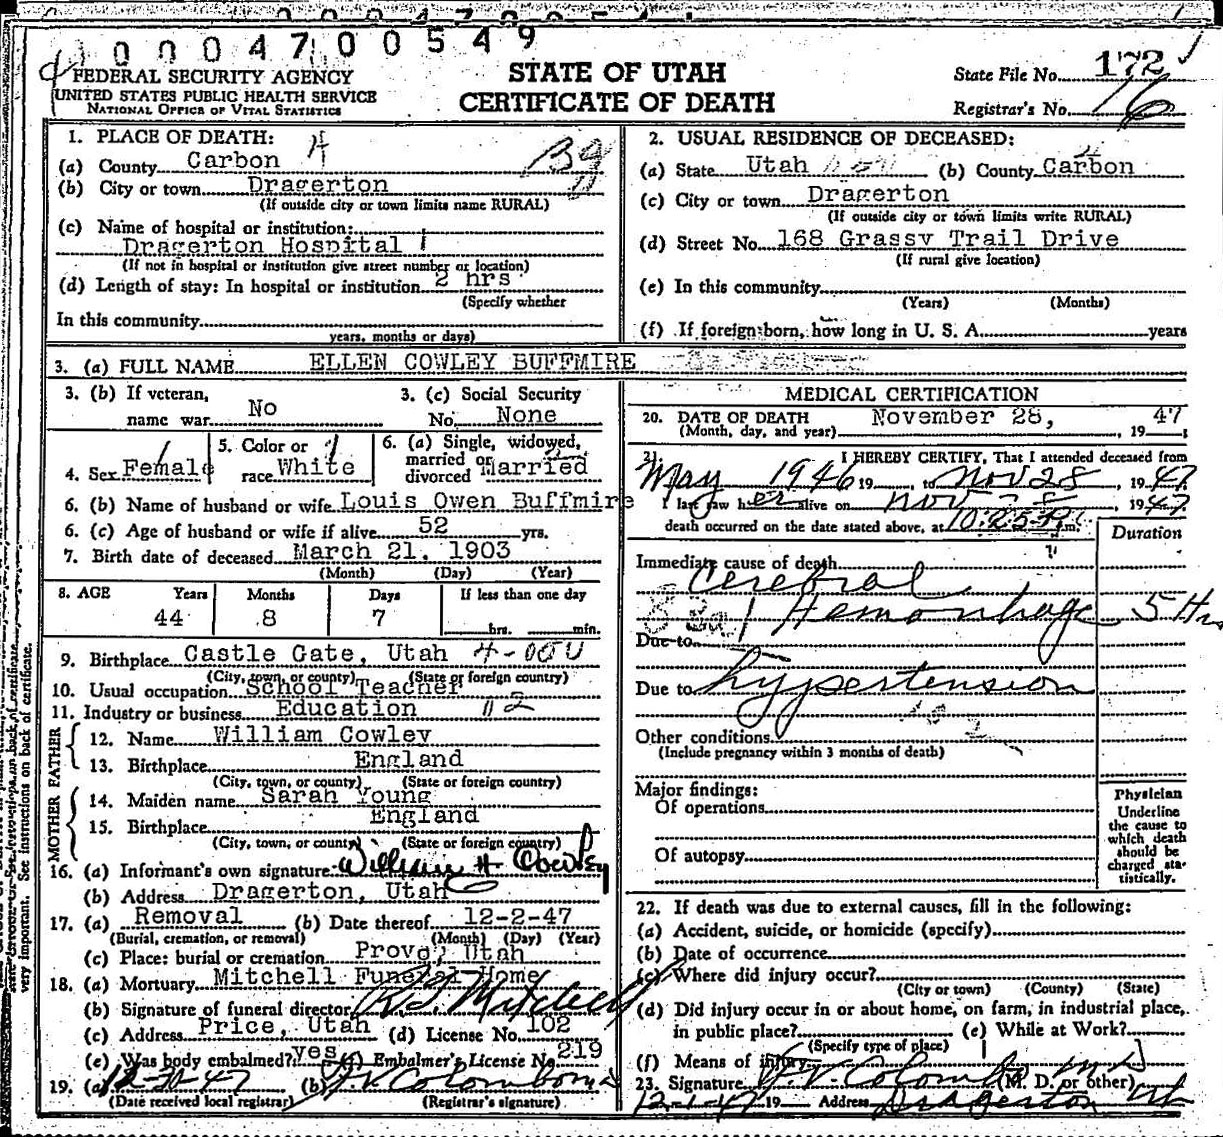 0004700549
FEDERAL SECURITY AGENCY
UNITED STATES PUBLIC HEALTH SERVICE
NATIONAL OFFICE OF VITAL STATISTICS
STATE OF UTAH
CERTIFICATE OF DEATH
State File No. 172
Registrar's No. 76
1. PLACE OF DEATH:
(a) County Carbon
(b) City or town Dragerton
(If outside city or town limits name RURAL)
(c) Name of hospital or institution:
Dragerton Hospital
(If not in hospital or institution give street number or location)
(d) Length of stay: In hospital or institution 2 hrs
(Specify whether
In this community
years, months or days)
2. USUAL RESIDENCE OF DECEASED:
(a) State Utah (b) County Carbon
(c) City or town Dragerton
(If outside city or town limits write RURAL)
(d) Street No. 168 Grassy Trail Drive
(If rural give location)
(e) In this community
(Years) (Months)
(f) If foreign born, how long in U. S. A. years
3. (a) FULL NAME ELLEN COWLEY BUFFMIRE
3. (b) If veteran, name war No
3. (c) Social Security No. None
4. Sex Female
5. Color or race White
6. (a) Single, widowed, married or divorced Married
6. (b) Name of husband or wife Louis Owen Buffmire
6. (c) Age of husband or wife if alive 52 yrs.
7. Birth date of deceased March 21, 1903
(Month) (Day) (Year)
8. AGE Years Months Days If less than one day
44 8 7 hrs. min.
9. Birthplace Castle Gate, Utah
(City, town, or county) (State or foreign country)
10. Usual occupation School Teacher
11. Industry or business Education
FATHER
12. Name William Cowley
13. Birthplace England
(City, town, or county) (State or foreign country)
MOTHER
14. Maiden name Sarah Young
15. Birthplace England
(City, town, or county) (State or foreign country)
16. (a) Informant's own signature William H Cowley
(b) Address Dragerton, Utah
17. (a) Removal (b) Date thereof 12-2-47
(Burial, cremation, or removal) (Month) (Day) (Year)
(c) Place: burial or cremation Provo, Utah
18. (a) Mortuary Mitchell Funeral Home
(b) Signature of funeral director Mitchell
(c) Address Price, Utah (d) License No. 102
(e) Was body embalmed? yes (f) Embalmer's License No. 219
19. (a) 12-30-47 (b) Colombo
(Date received local registrar) (Registrar's signature)
MEDICAL CERTIFICATION
20. DATE OF DEATH November 28, 1947
(Month, day, and year)
21. I HEREBY CERTIFY, That I attended deceased from
May 1946 19 , to Nov 28 , 1947
I last saw her alive on Nov 28 , 1947
death occurred on the date stated above, at 10:25 P. m.
Duration
Immediate cause of death
Cerebral
Hemorrhage 5 Hrs
Due to
Due to hypertension
Other conditions
(Include pregnancy within 3 months of death)
Major findings:
Of operations
Of autopsy
Physician
Underline the cause to which death should be charged statistically.
22. If death was due to external causes, fill in the following:
(a) Accident, suicide, or homicide (specify)
(b) Date of occurrence
(c) Where did injury occur?
(City or town) (County) (State)
(d) Did injury occur in or about home, on farm, in industrial place,
in public place? (e) While at Work?
(Specify type of place)
(f) Means of injury
23. Signature Colombo MD (M. D. or other)
12-1-47 19 Address Dragerton Ut
very important. See instructions on back of certificate.